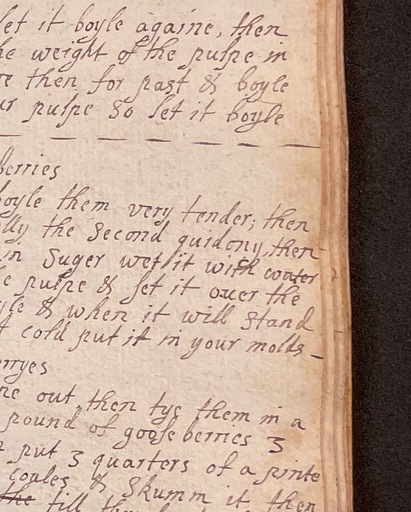 let it boyle againe, then
he weight of the pulpe in
re then for past & boyle
ur pulpe so let it boyle
Berries
boyle them very tender; then
lly the second quidony, then
in suger wett it with water
e pulpe & set it over the
yle & when it will stand
t cold put it in your molds
erryes
ne out then tye them in a
pound of goose berries 3
put 3 quarters of a pinte
coules & skumm it then
the till